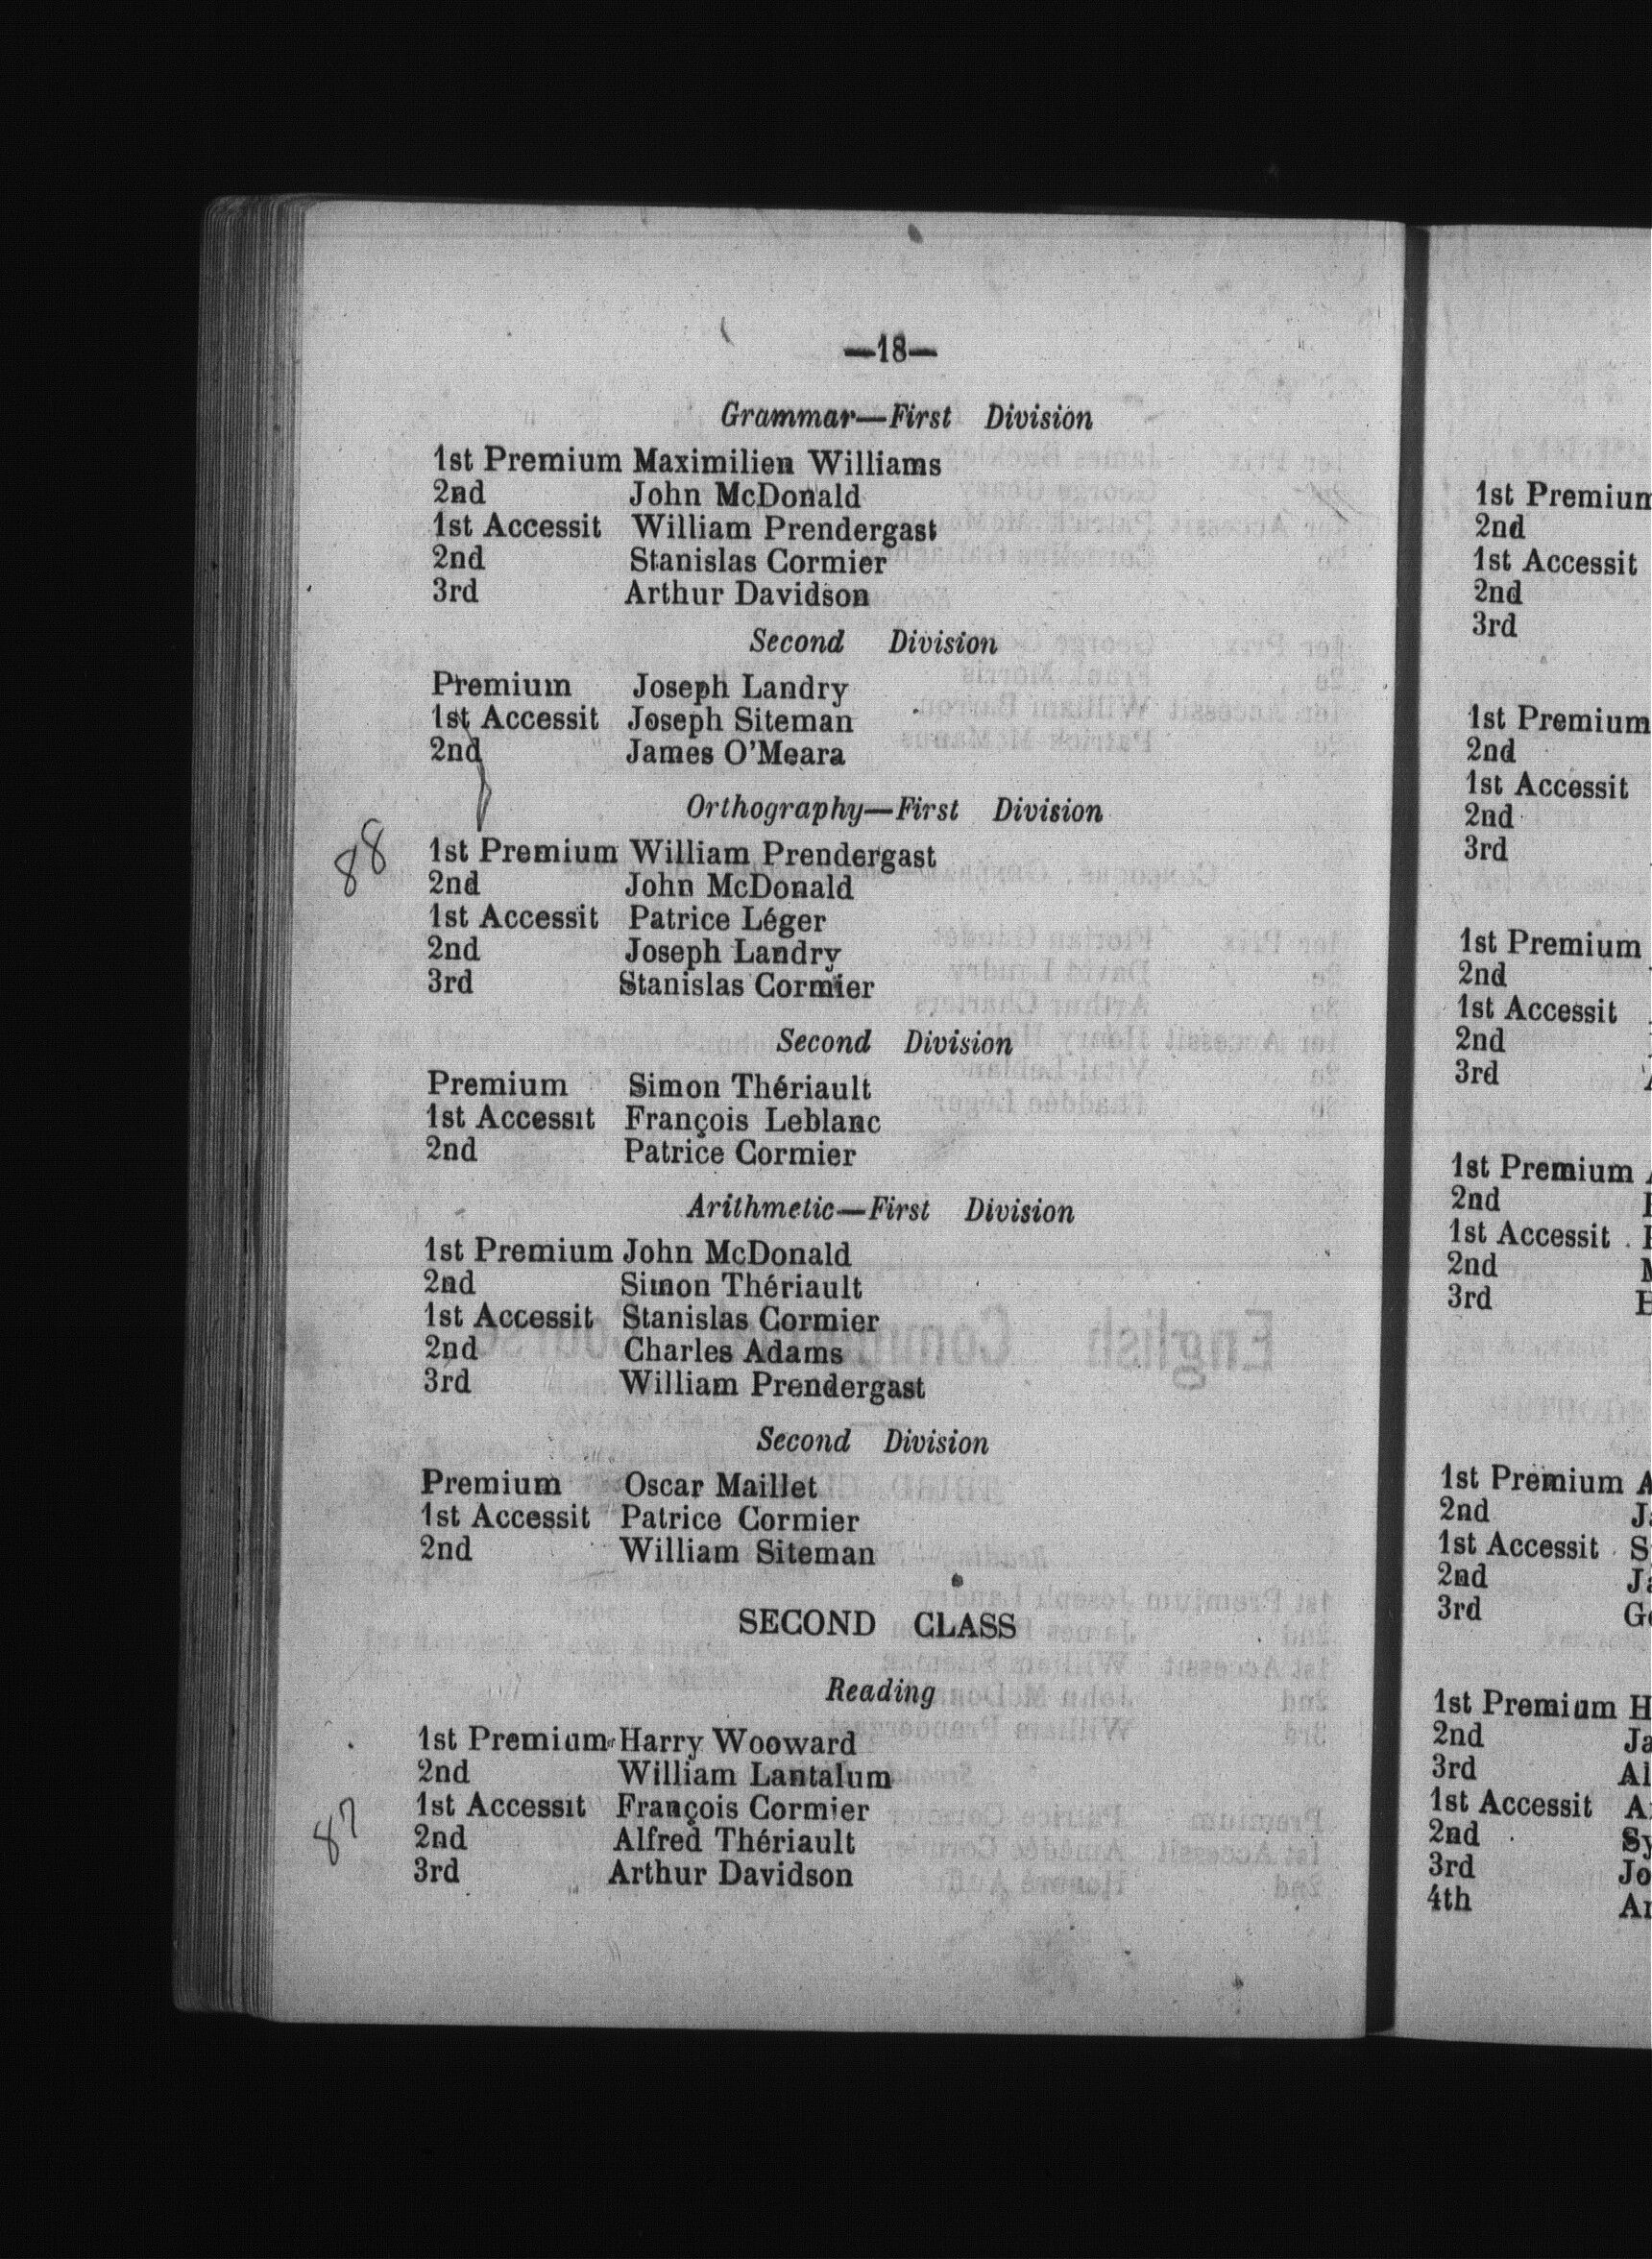 —18—
Grammar—First Division
1st Premium Maximilien Williams
2nd John McDonald
1st Accessit William Prendergast
2nd Stanislas Cormier
3rd Arthur Davidson
Second Division
Premium Joseph Landry
1st Accessit Joseph Siteman
2nd James O'Meara
Orthography—First Division
88
1st Premium William Prendergast
2nd John McDonald
1st Accessit Patrice Léger
2nd Joseph Landry
3rd Stanislas Cormier
Second Division
Premium Simon Thériault
1st Accessit François Leblanc
2nd Patrice Cormier
Arithmetic—First Division
1st Premium John McDonald
2nd Simon Thériault
1st Accessit Stanislas Cormier
2nd Charles Adams
3rd William Prendergast
Second Division
Premium Oscar Maillet
1st Accessit Patrice Cormier
2nd William Siteman
SECOND CLASS
Reading
1st Premium Harry Wooward
2nd William Lantalum
1st Accessit François Cormier
87
2nd Alfred Thériault
3rd Arthur Davidson
1st Premium
2nd
1st Accessit
2nd
3rd
1st Premium
2nd
1st Accessit
2nd
3rd
1st Premium
2nd
1st Accessit
2nd
3rd
1st Premium
2nd
1st Accessit
2nd
3rd
1st Premium
2nd
1st Accessit
2nd
3rd
1st Premium
2nd
3rd
1st Accessit
2nd
3rd
4th